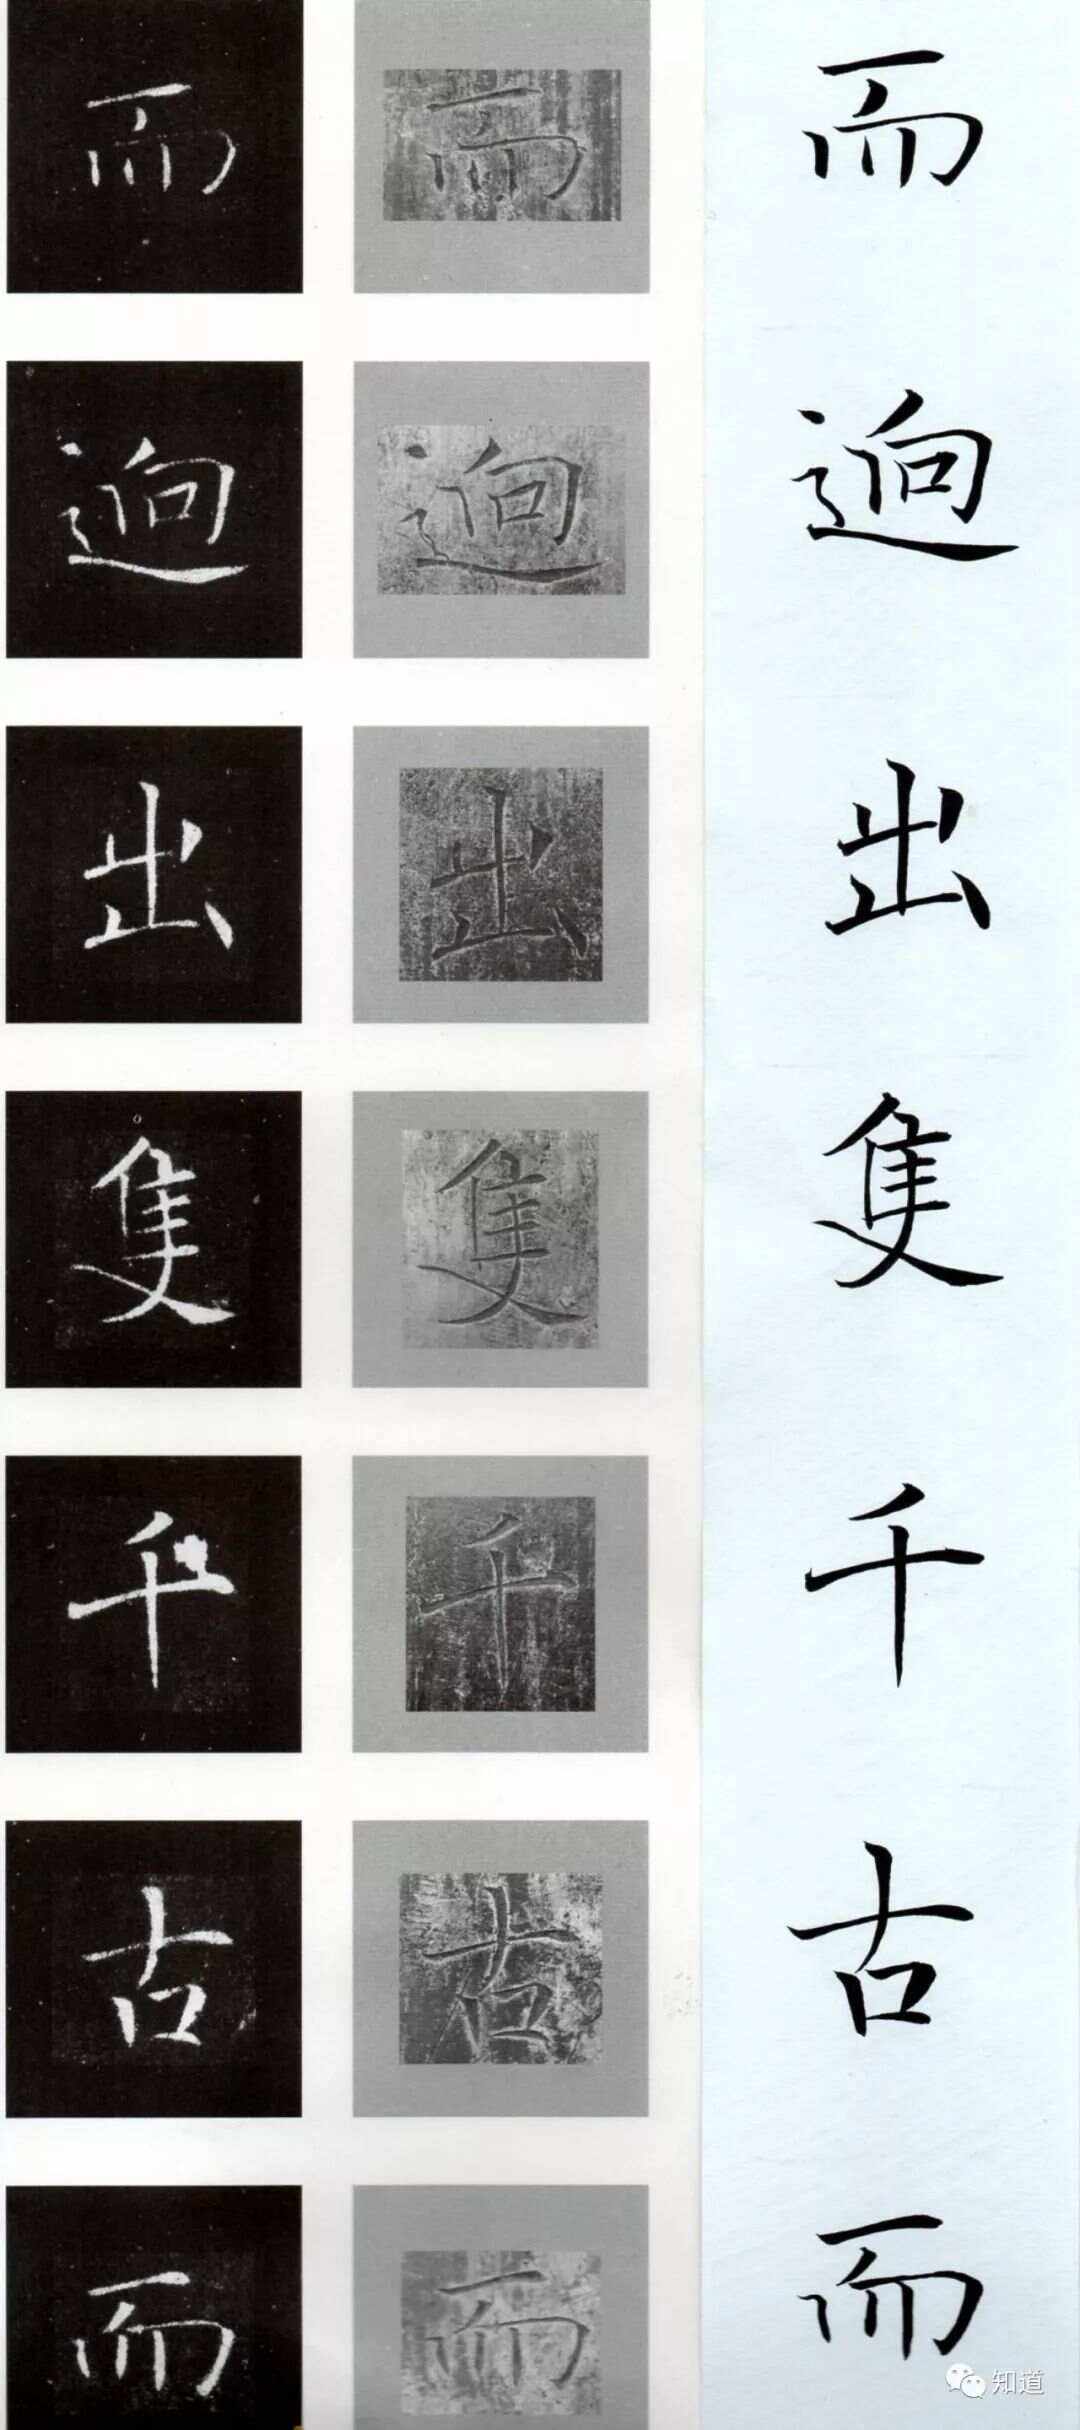 而 而 而
逈 逈 逈
出 出 出
隻 隻 隻
千 千 千
古 古 古
而 而 而
知道